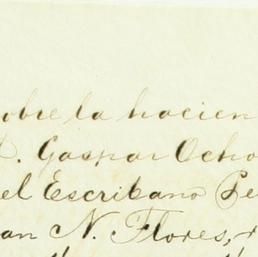 sobre la hacien
D. Gaspar Ocho
el Escribano Pe
an N. Flores,